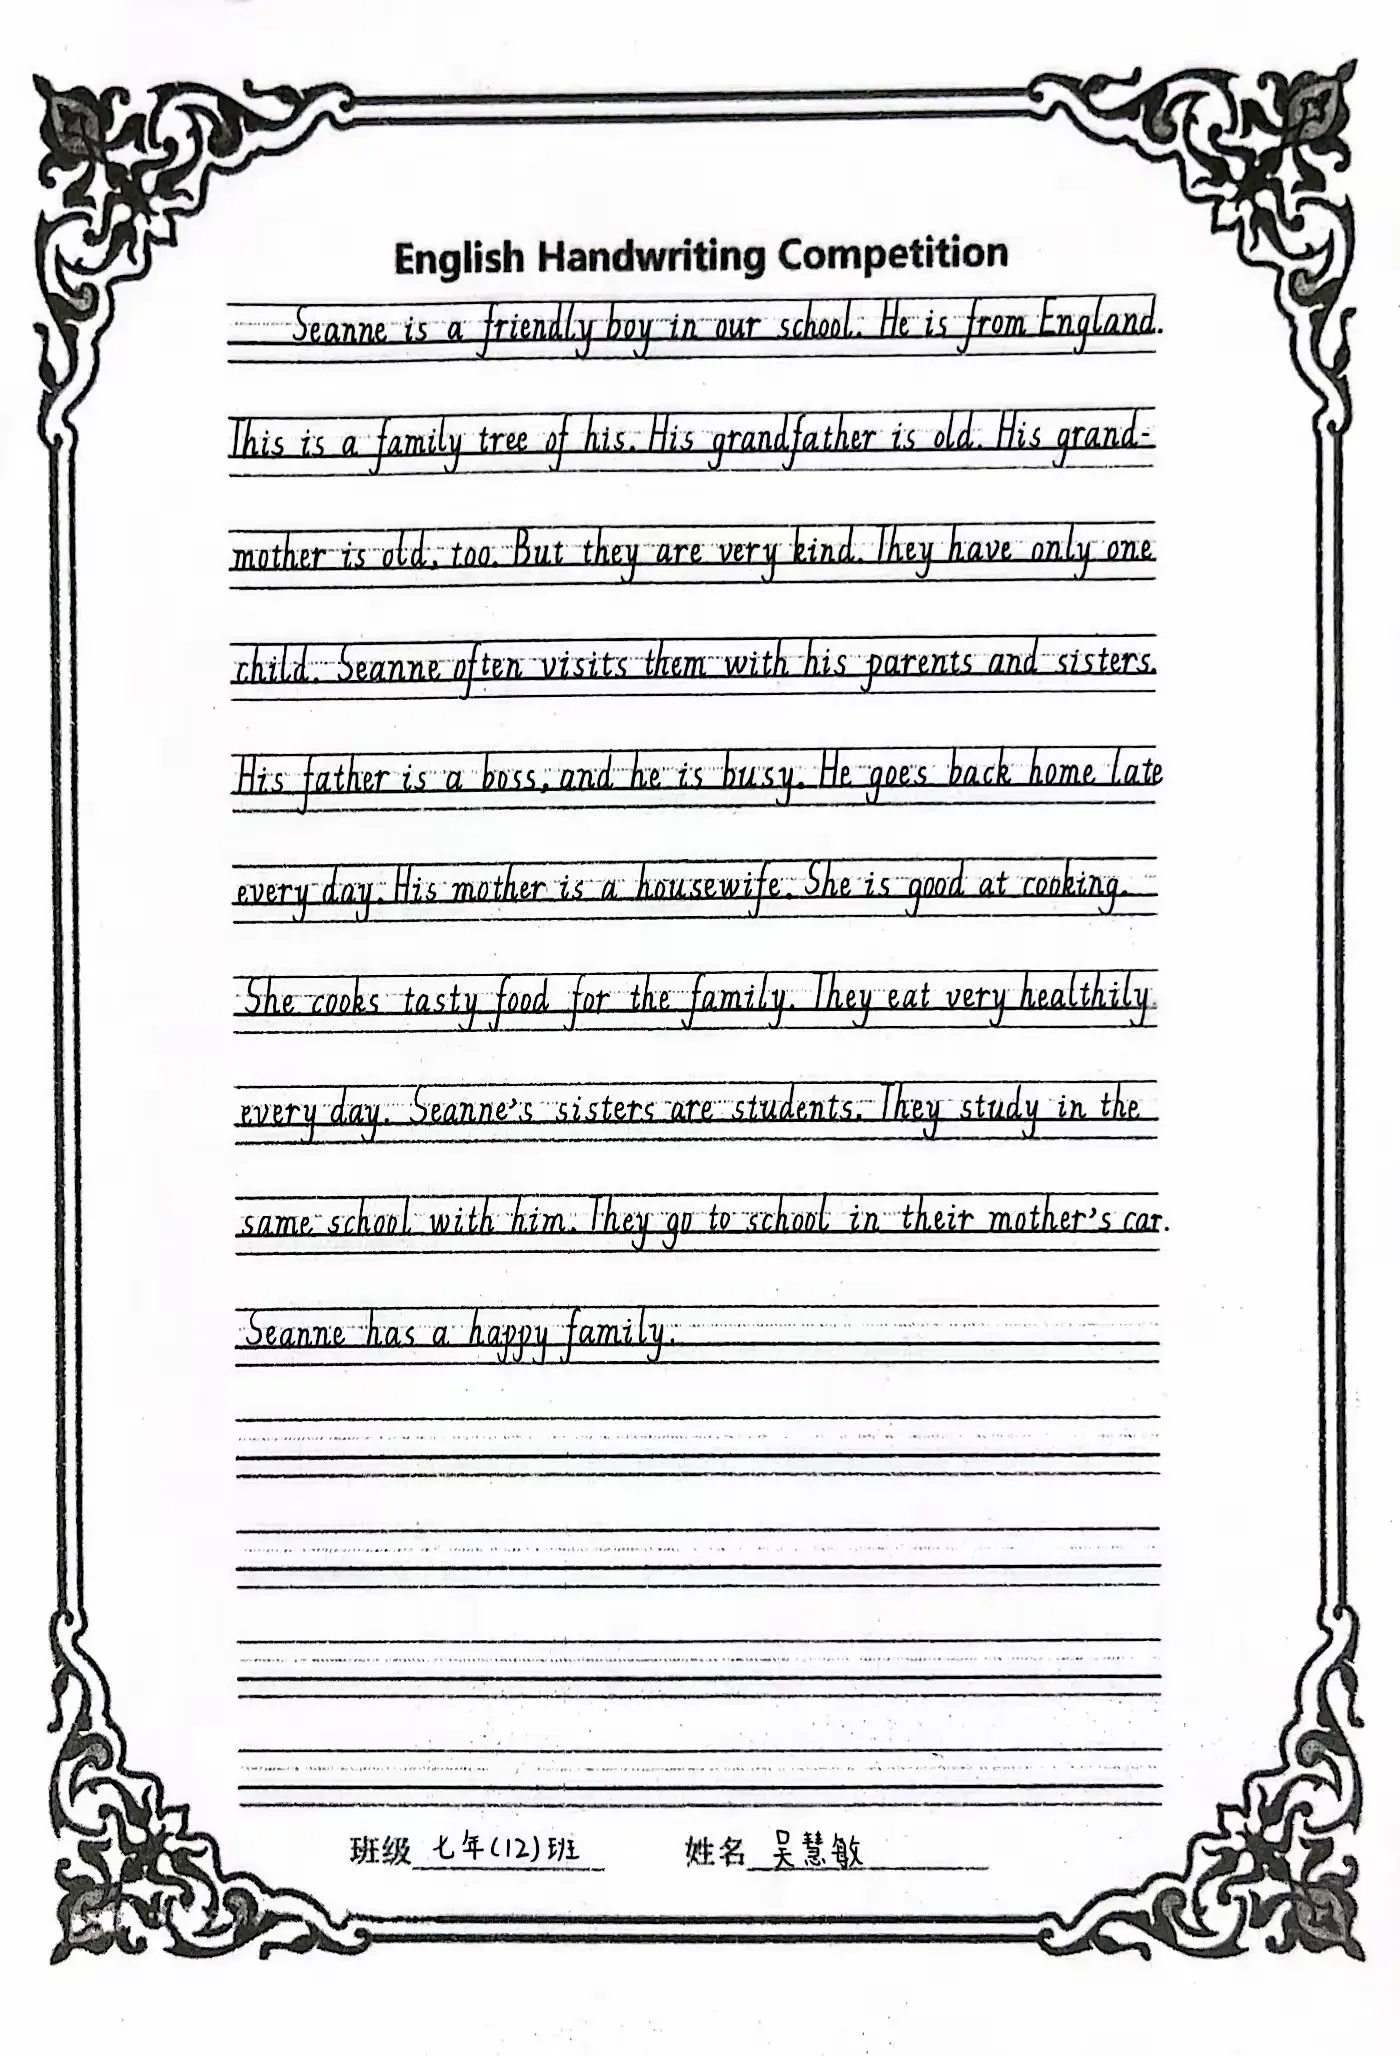 English Handwriting Competition
Seanne is a friendly boy in our school. He is from England.
This is a family tree of his. His grandfather is old. His grand-
mother is old, too. But they are very kind. They have only one
child. Seanne often visits them with his parents and sisters.
His father is a boss, and he is busy. He goes back home late
every day. His mother is a housewife. She is good at cooking.
She cooks tasty food for the family. They eat very healthily
every day. Seanne's sisters are students. They study in the
same school with him. They go to school in their mother's car.
Seanne has a happy family.
班级 七年(12)班 姓名 吴慧敏